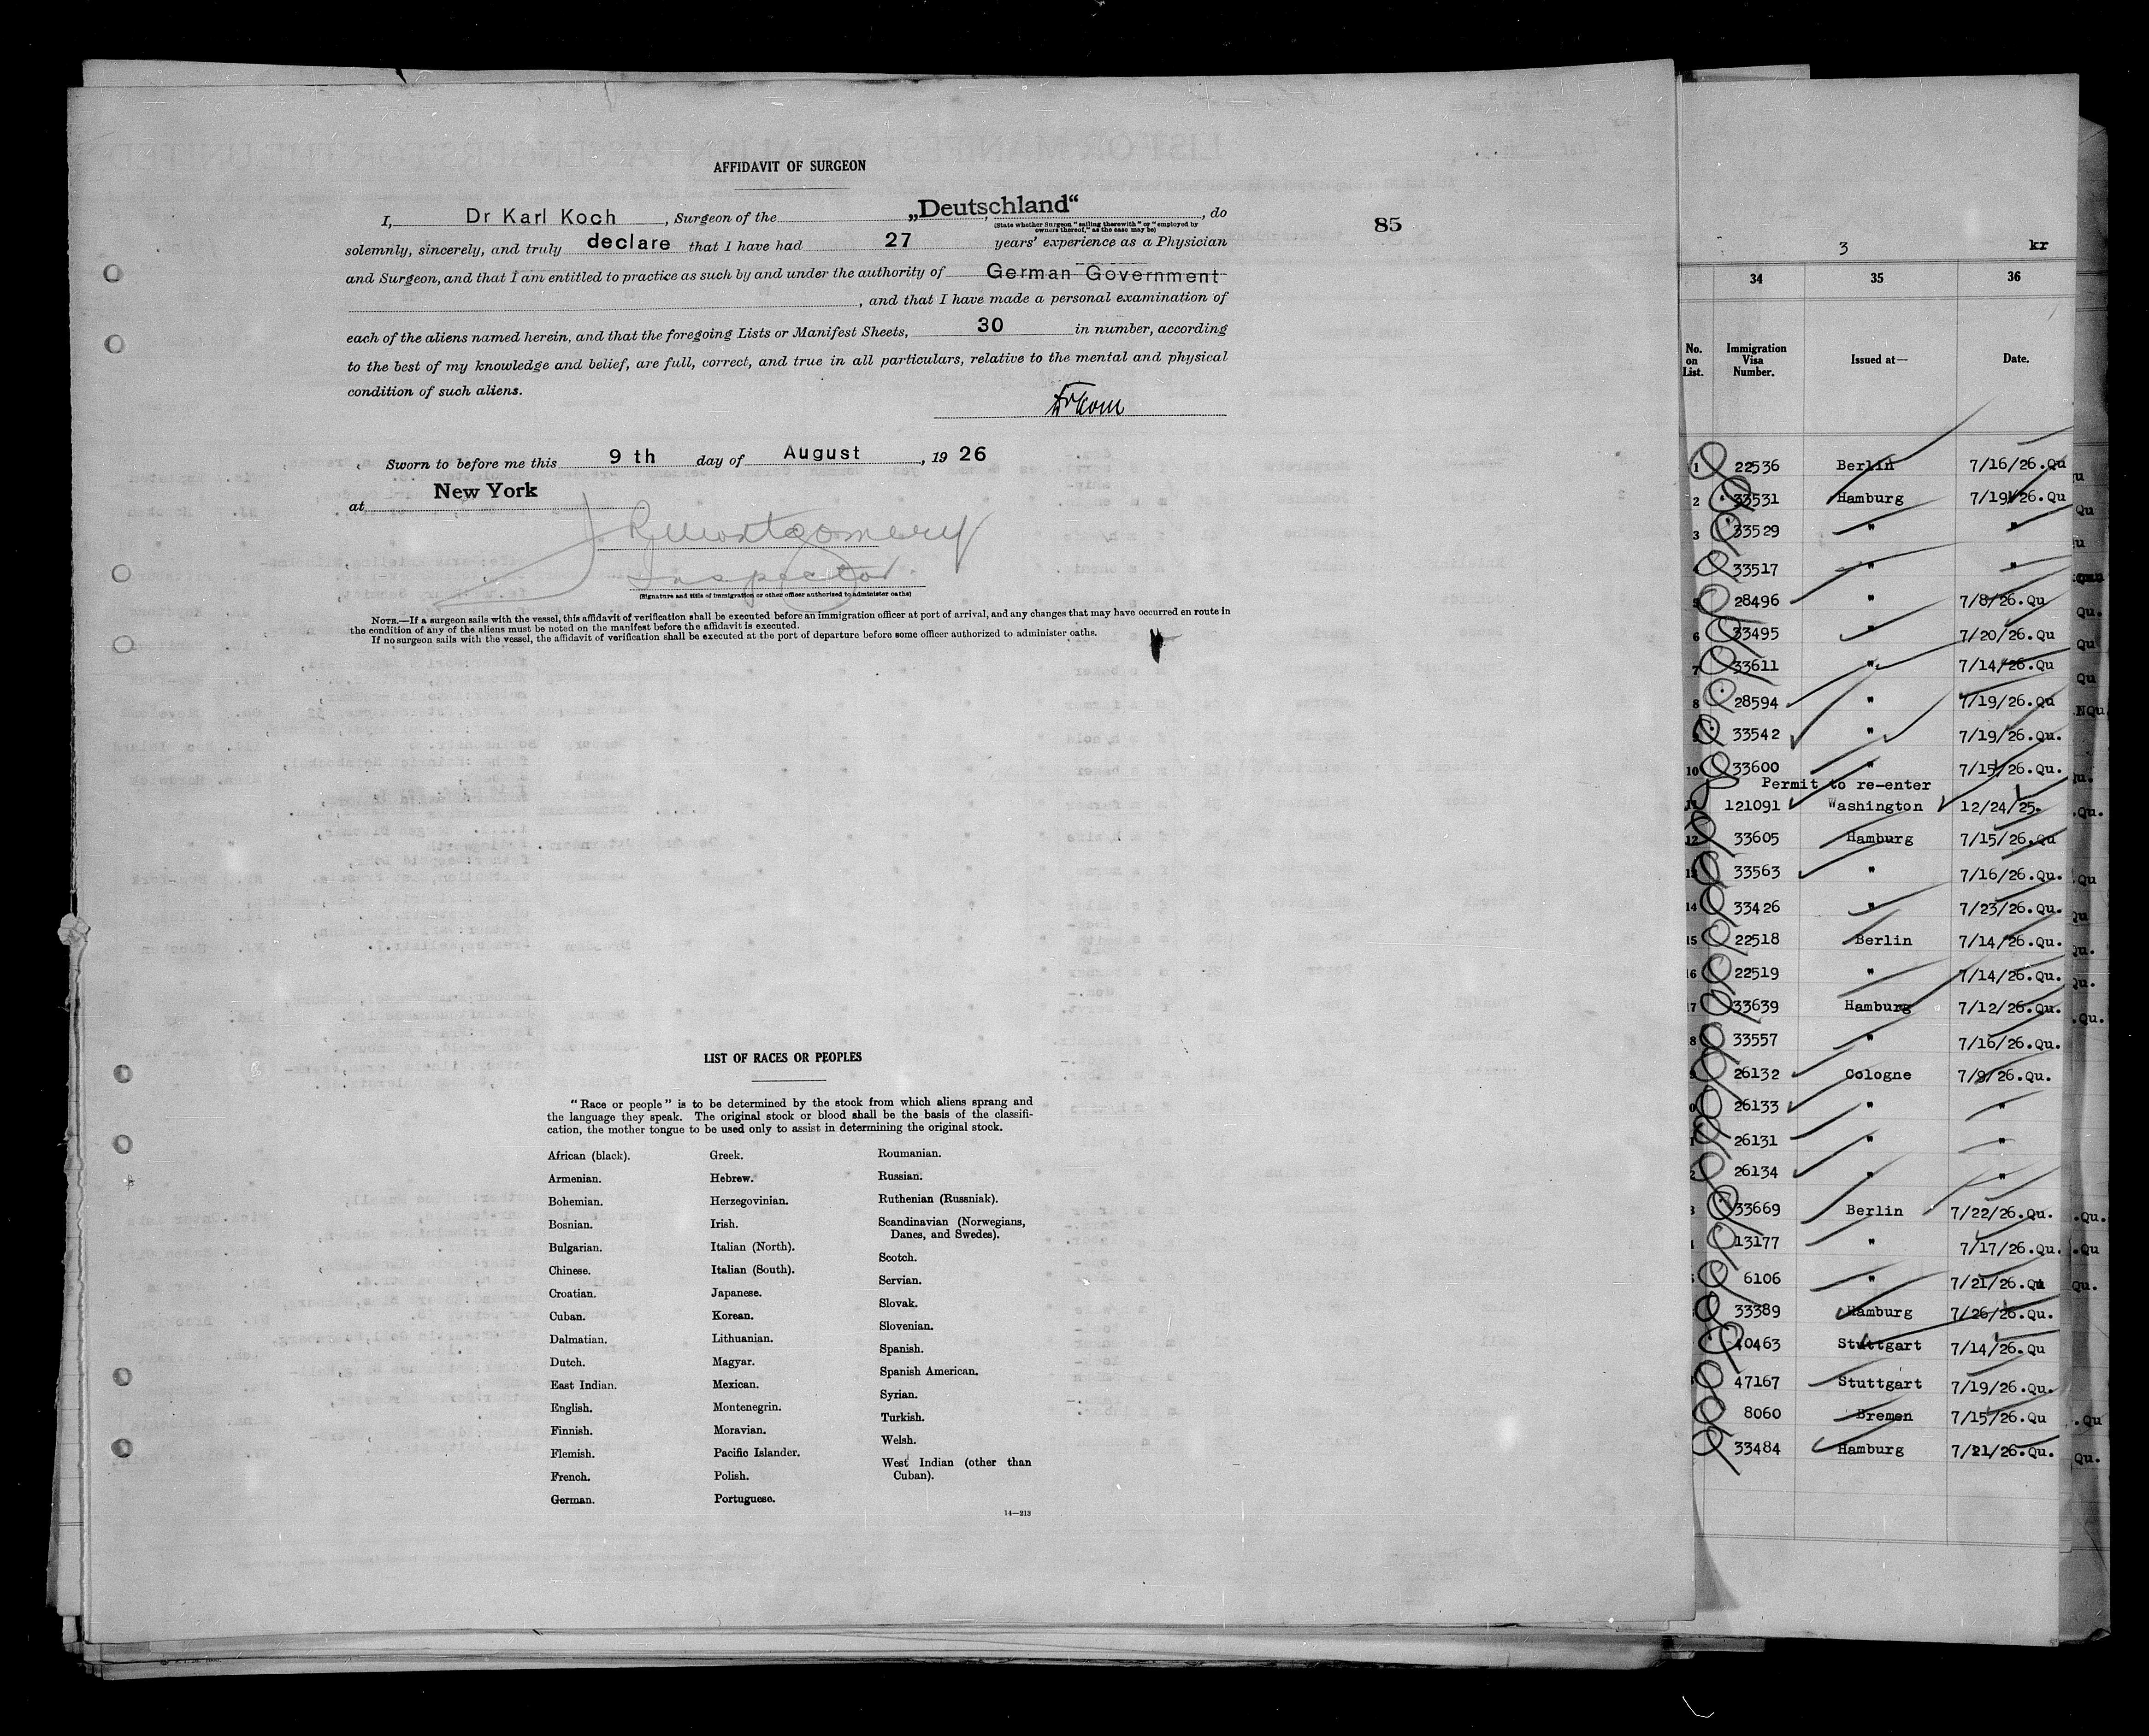 AFFIDAVIT OF SURGEON
I, Dr Karl Koch, Surgeon of the „Deutschland“, do
(State whether Surgeon "sailing therewith" or "employed by owners thereof," as the case may be)
solemnly, sincerely, and truly declare that I have had 27 years' experience as a Physician
and Surgeon, and that I am entitled to practice as such by and under the authority of German Government
, and that I have made a personal examination of
each of the aliens named herein, and that the foregoing Lists or Manifest Sheets, 30 in number, according
to the best of my knowledge and belief, are full, correct, and true in all particulars, relative to the mental and physical
condition of such aliens.
Sworn to before me this 9 th day of August, 19 26
at New York
Montgomery
Inspector.
(Signature and title of immigration or other officer authorized to administer oaths)
NOTE.—If a surgeon sails with the vessel, this affidavit of verification shall be executed before an immigration officer at port of arrival, and any changes that may have occurred en route in
the condition of any of the aliens must be noted on the manifest before the affidavit is executed.
If no surgeon sails with the vessel, the affidavit of verification shall be executed at the port of departure before some officer authorized to administer oaths.
85
LIST OF RACES OR PEOPLES
"Race or people" is to be determined by the stock from which aliens sprang and
the language they speak. The original stock or blood shall be the basis of the classifi-
cation, the mother tongue to be used only to assist in determining the original stock.
African (black).
Armenian.
Bohemian.
Bosnian.
Bulgarian.
Chinese.
Croatian.
Cuban.
Dalmatian.
Dutch.
East Indian.
English.
Finnish.
Flemish.
French.
German.
Greek.
Hebrew.
Herzegovinian.
Irish.
Italian (North).
Italian (South).
Japanese.
Korean.
Lithuanian.
Magyar.
Mexican.
Montenegrin.
Moravian.
Pacific Islander.
Polish.
Portuguese.
Roumanian.
Russian.
Ruthenian (Russniak).
Scandinavian (Norwegians,
Danes, and Swedes).
Scotch.
Servian.
Slovak.
Slovenian.
Spanish.
Spanish American.
Syrian.
Turkish.
Welsh.
West Indian (other than
Cuban).
14—213
3 kr
34 35 36
No. on List. Immigration Visa Number. Issued at— Date.
1 22536 Berlin 7/16/26.Qu
2 33531 Hamburg 7/19/26.Qu
3 33529 " "
4 33517 " "
5 28496 " 7/8/26.Qu
6 33495 " 7/20/26.Qu
7 33611 " 7/14/26.Qu
8 28594 " 7/19/26.Qu
9 33542 " 7/19/26.Qu.
10 33600 " 7/15/26.Qu.
Permit to re-enter
11 121091 Washington 12/24/25.
12 33605 Hamburg 7/15/26.Qu
13 33563 " 7/16/26.Qu.
14 33426 " 7/23/26.Qu.
15 22518 Berlin 7/14/26.Qu.
16 22519 " 7/14/26.Qu.
7 33639 Hamburg 7/12/26.Qu.
8 33557 " 7/16/26.Qu.
9 26132 Cologne 7/9/26.Qu.
0 26133 " "
1 26131 " "
2 26134 " "
3 33669 Berlin 7/22/26.Qu.
13177 " 7/17/26.Qu.
6106 " 7/21/26.Qu
33389 Hamburg 7/26/26.Qu.
40463 Stuttgart 7/14/26.Qu
47167 Stuttgart 7/19/26.Qu.
8060 Bremen 7/15/26.Qu
33484 Hamburg 7/21/26.Qu.